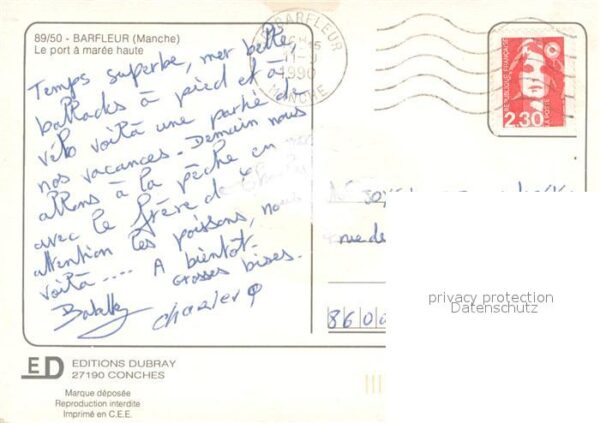 89/50 - BARFLEUR (Manche)
Le port à marée haute
Temps superbe, mer belle,
ballades à pied et à
vélo voilà une partie de
nos vacances. Demain nous
allons à la pêche en mer
avec le frère de
attention les poissons, nous
voilà .... A bientôt.
Grosses bises.
BARFLEUR
1990
MANCHE
REPUBLIQUE FRANÇAISE
LA POSTE
2,30
rue de
8600
privacy protection
Datenschutz
ED
EDITIONS DUBRAY
27190 CONCHES
Marque déposée
Reproduction interdite
Imprimé en C.E.E.